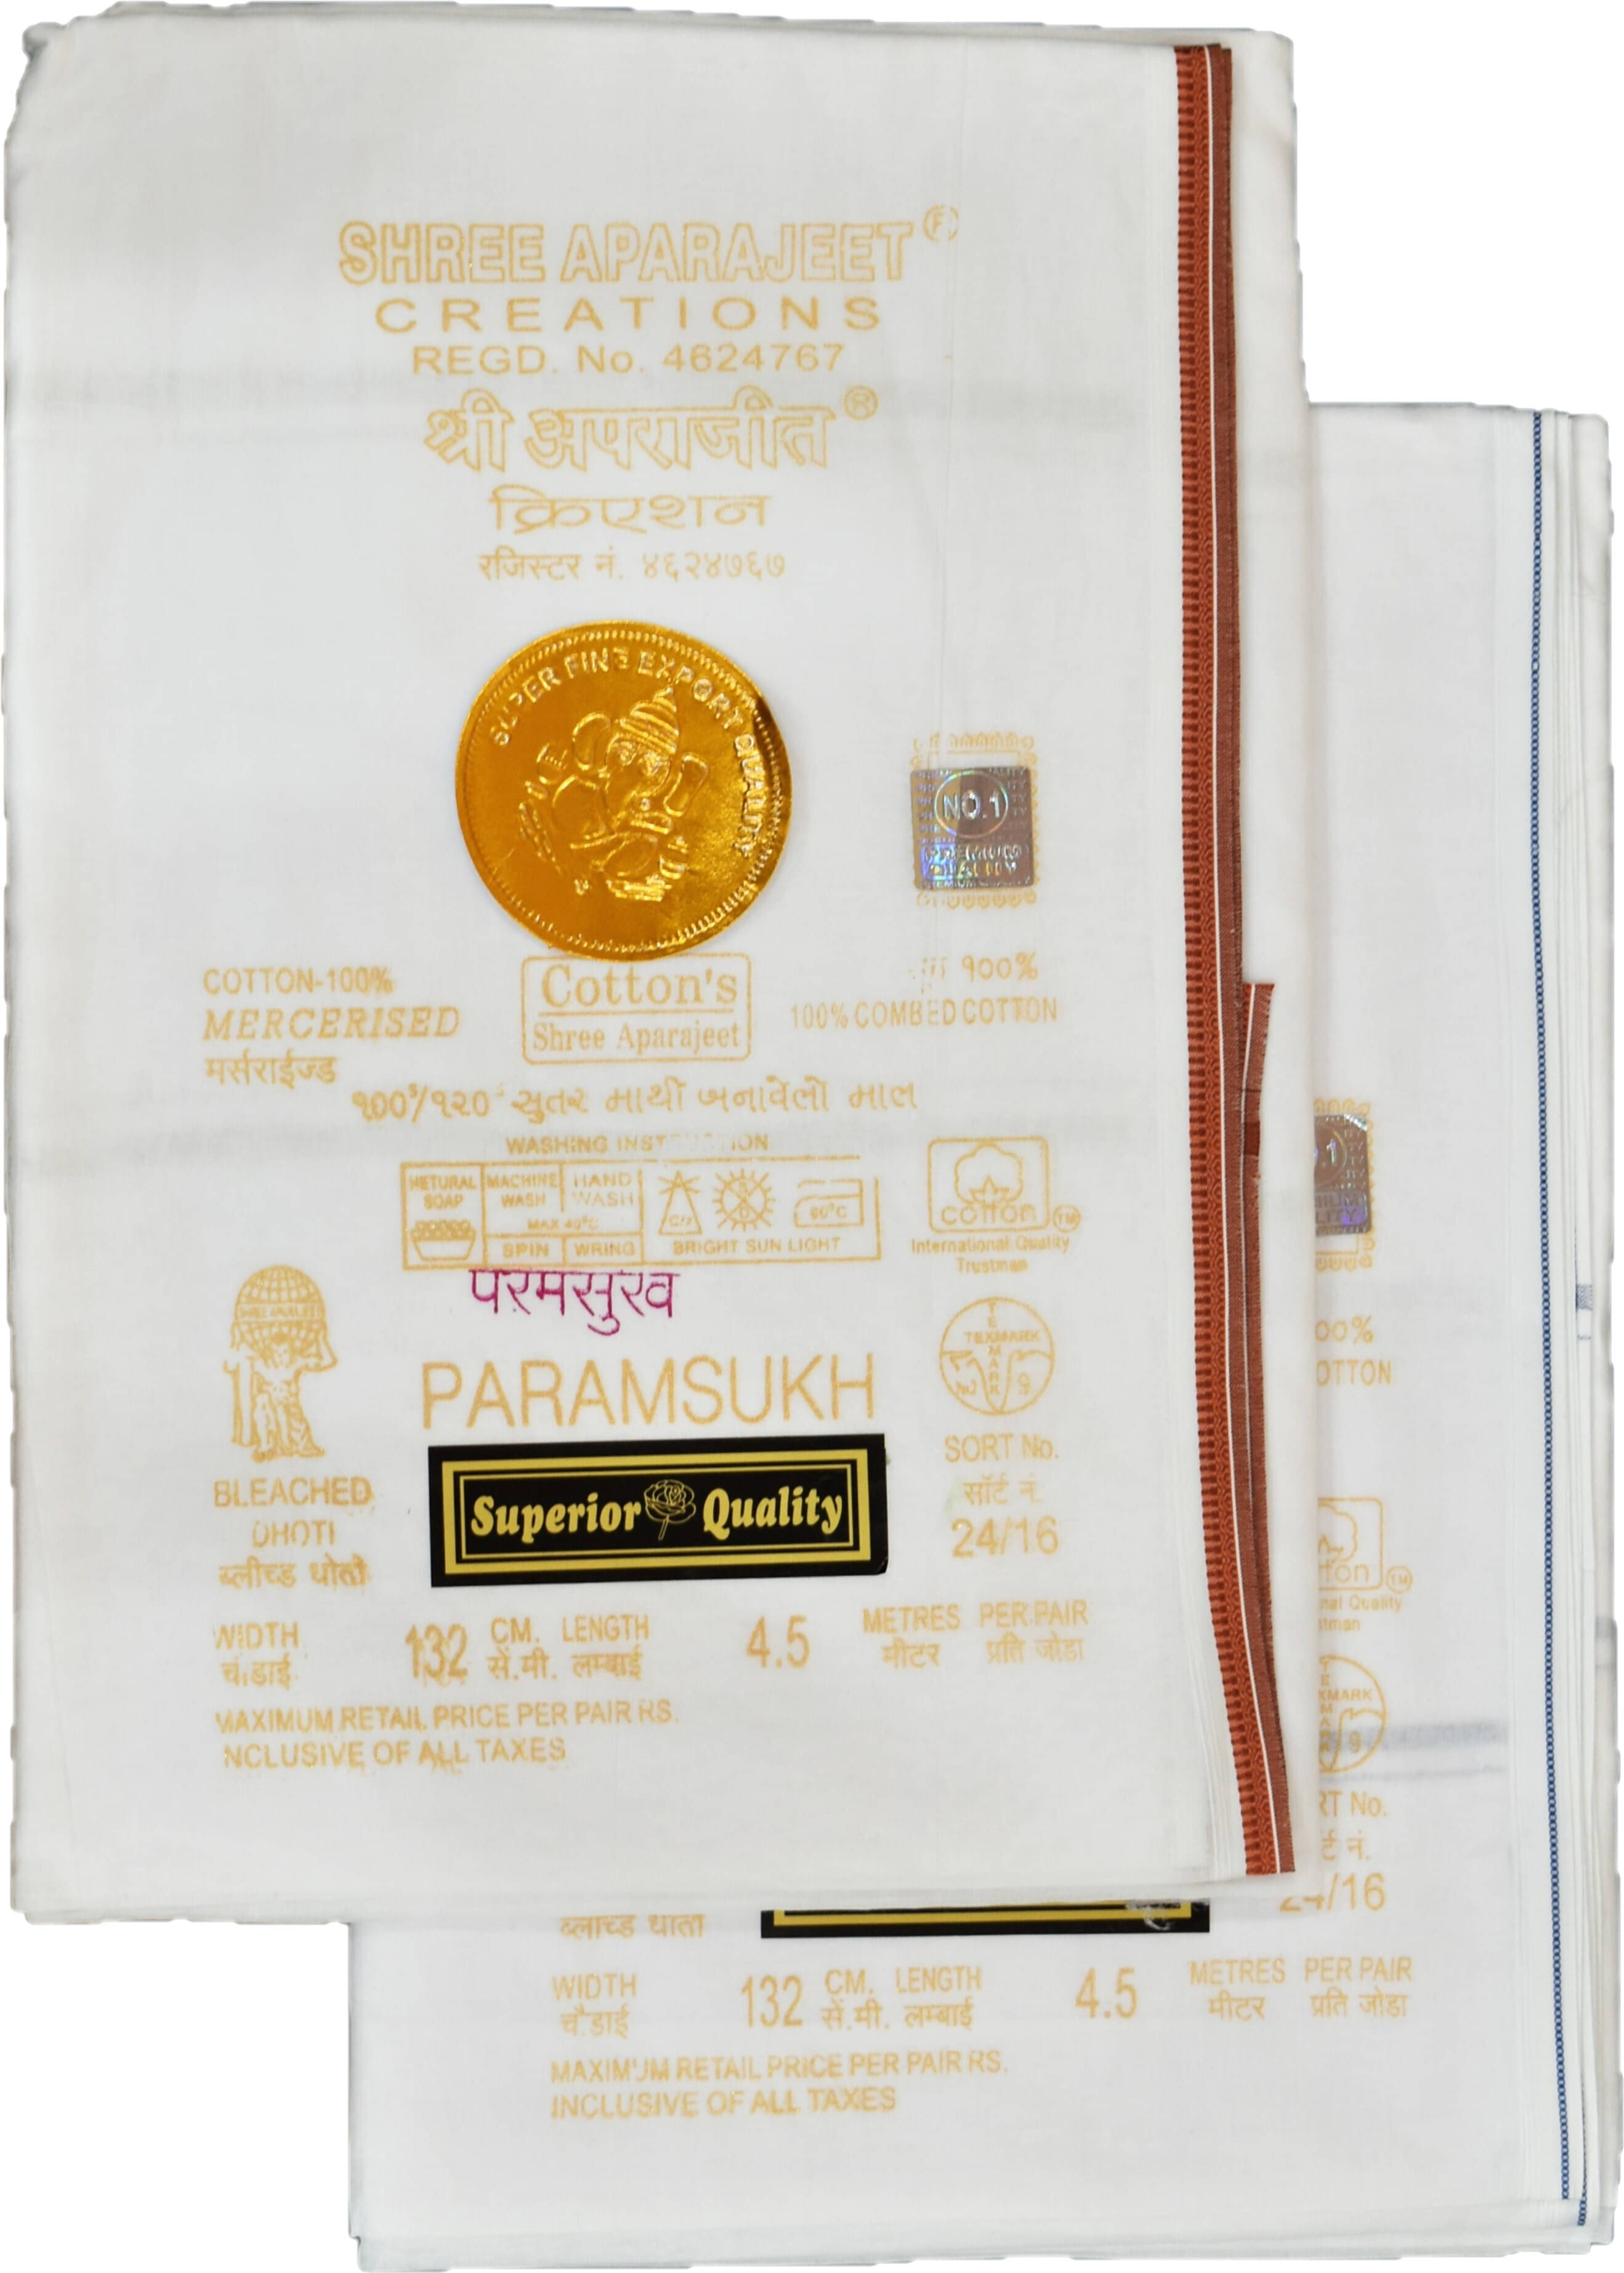 SHREE APARAJEET
CREATIONS
REGD. No. 4624767
श्री अपराजीत ®
क्रिएशन
रजिस्टर नं. ४६२४७६७
SUPER FINE EXPORT QUALITY
NO.1
COTTON-100%
MERCERISED
मर्सराईज्ड
Cotton's
Shree Aparajeet
१००%
100% COMBED COTTON
૧૦૦ˢ/૧૨૦ˢ સુતર માથી બનાવેલો માલ
WASHING INST ION
NETURAL SOAP
MACHINE WASH
HAND WASH
MAX 40°C
SPIN
WRING
60°C
BRIGHT SUN LIGHT
COTTON TM
International Quality
Trustman
परमसुख
PARAMSUKH
TEXMARK
Superior Quality
BLEACHED
DHOTI
ब्लीच्ड धोती
SORT No.
सॉर्ट नं.
24/16
WIDTH 132 CM. LENGTH 4.5 METRES PER PAIR
चौडाई सें.मी. लम्बाई मीटर प्रति जोडा
MAXIMUM RETAIL PRICE PER PAIR RS.
NCLUSIVE OF ALL TAXES
.1
00%
OTTON
TM
Quality
XMARK
RT No.
नं.
24/16
WIDTH 132 CM. LENGTH 4.5 METRES PER PAIR
चौडाई सें.मी. लम्बाई मीटर प्रति जोडा
MAXIMUM RETAIL PRICE PER PAIR RS.
INCLUSIVE OF ALL TAXES